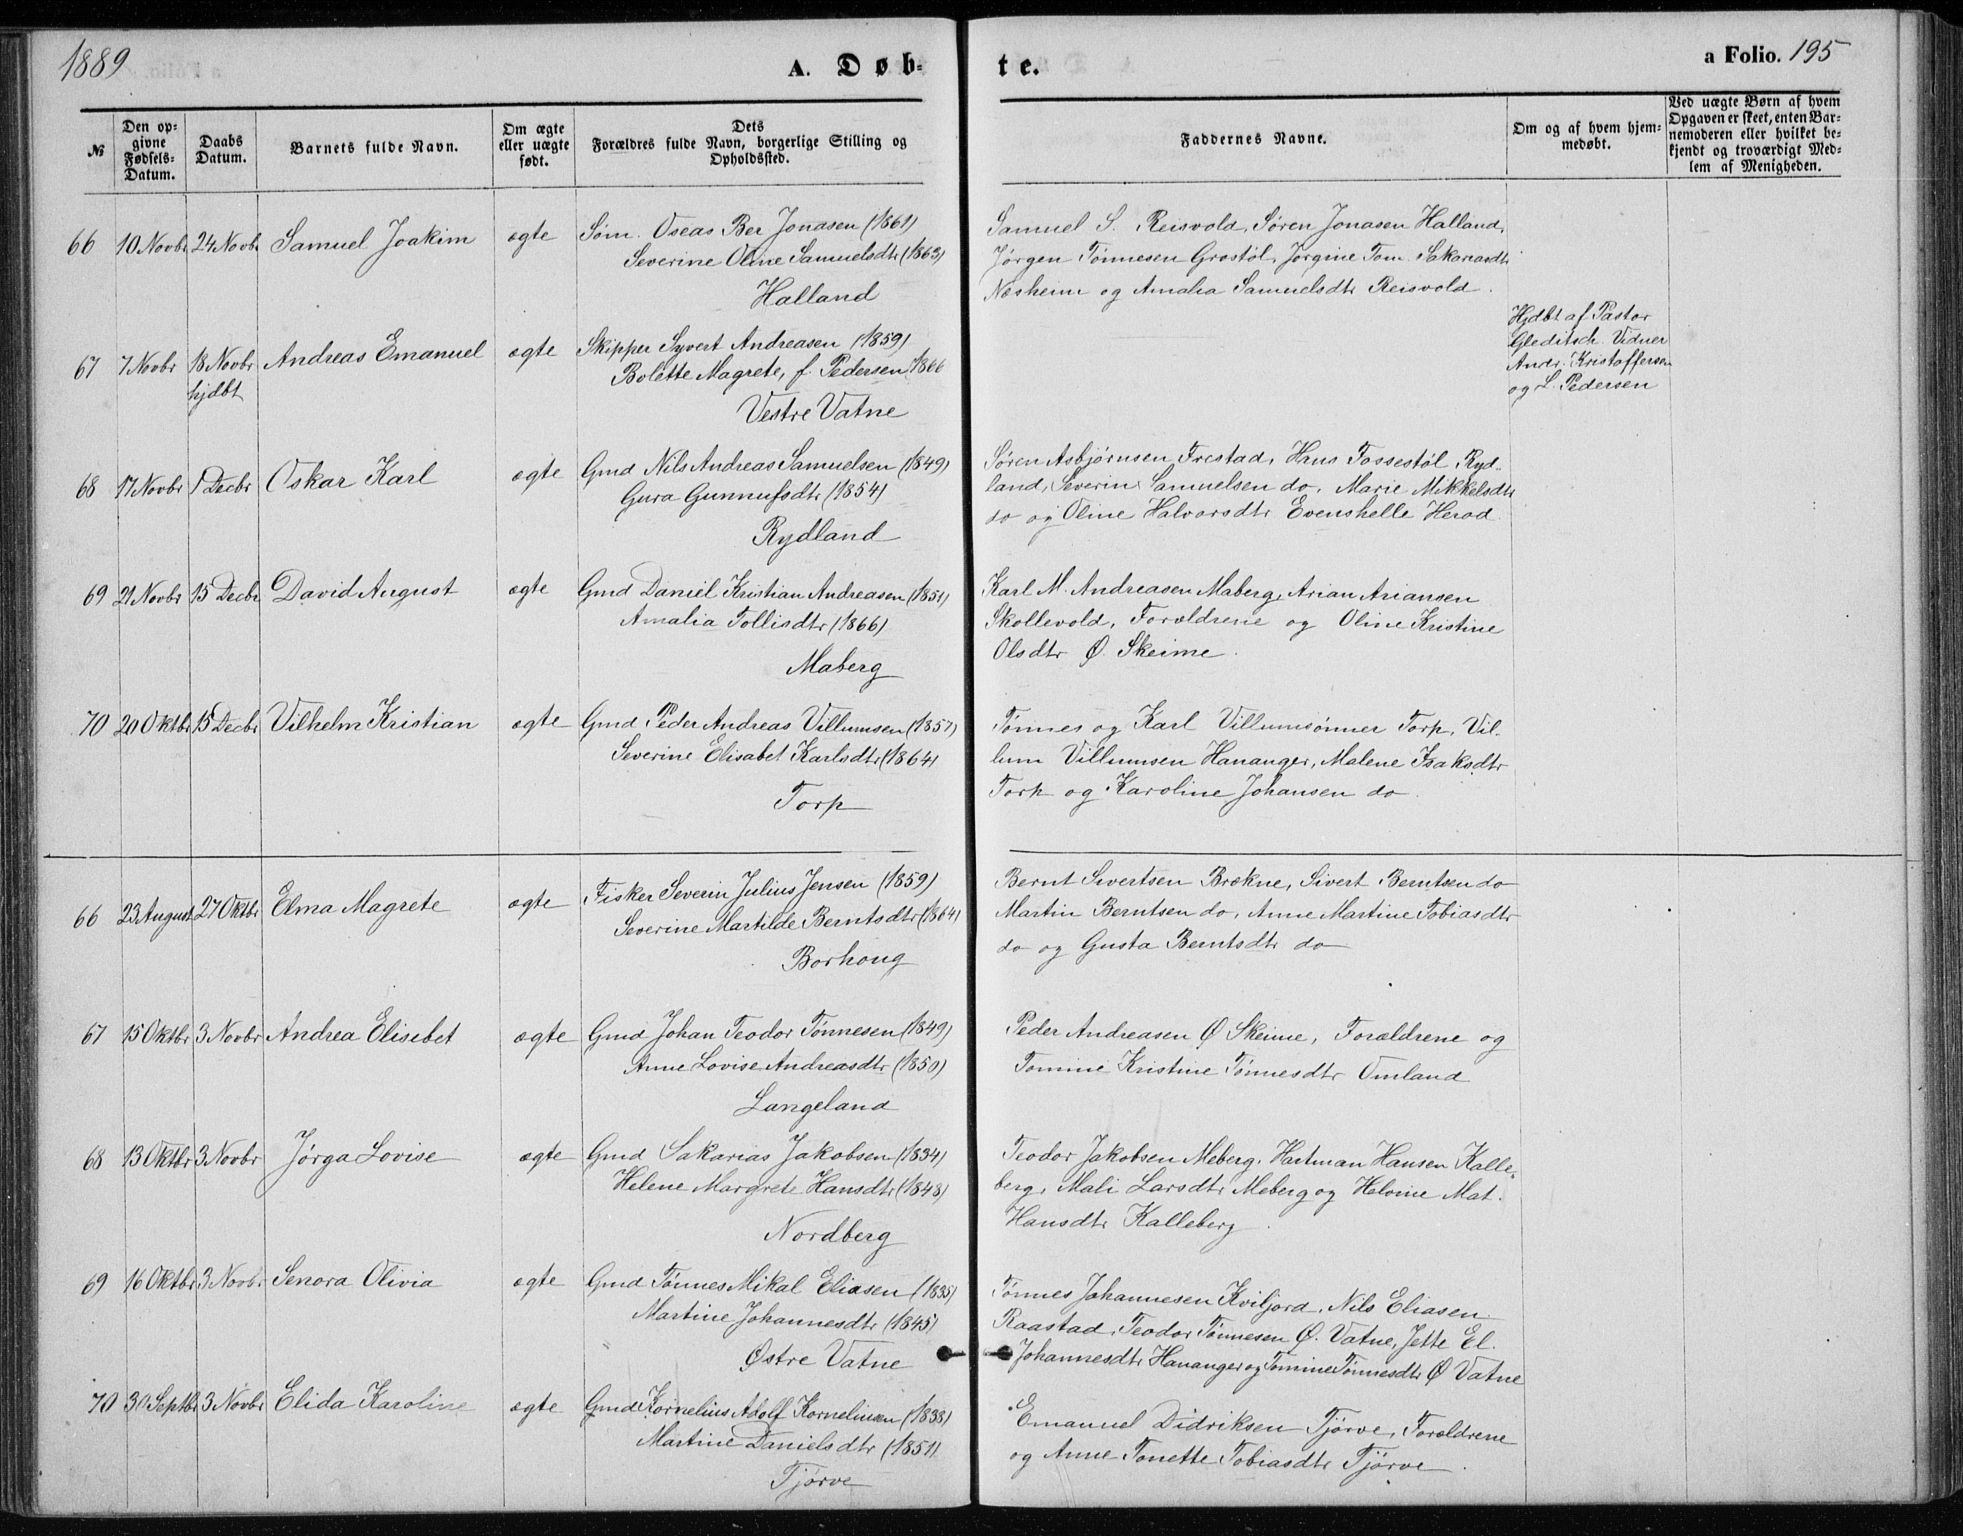 1889
A. Døb-
te.
a Folio. 195
№
Den op-
givne
Fødsels-
Datum.
Daabs
Datum.
Barnets fulde Navn.
Om ægte
eller uægte
født.
Dets
Forældres fulde Navn, borgerlige Stilling og
Opholdssted.
Faddernes Navne.
Om og af hvem hjem-
medøbt.
Ved uægte Børn af hvem
Opgaven er skeet, enten Bar-
nemoderen eller hvilket be-
kjendt og troværdigt Med-
lem af Menigheden.
66 10 Novbr 24 Novbr Samuel Joakim ægte Søm. Oseas Ber Jonasen (1861)
Severine Oline Samuelsdtr (1863)
Halland
Samuel S. Reisvold, Søren Jonasen Halland,
Jørgen Tønnesen Grostøl, Jørgine Tom. Sakariasdtr
Nesheim og Amalia Samuelsdtr Reisvold.
67 7 Novbr 18 Novbr Andreas Emanuel ægte Skipper Syvert Andreasen (1859)
hjdbt
Bolette Magrete, f. Pedersen 1866
Vestre Vatne
Hjdbt af Pastor
Gleditsch. Vidner
Andr. Kristoffersen
og L. Pedersen
68 17 Novbr 1 Decbr Oskar Karl ægte Gmd Nils Andreas Samuelsen (1849)
Gura Gunnufsdtr (1854)
Rydland
Søren Asbjørnsen Frestad, Hans Fossestøl, Ryd-
land, Severin Samuelsen do, Marie Mikkelsdtr
do og Oline Halvorsdtr Evenshelle Herad
69 21 Novbr 15 Decbr David August ægte Gmd Daniel Kristian Andreasen (1851)
Amalia Tollisdtr (1866)
Maberg
Karl M. Andreasen Maberg, Arian Ariansen
Skollevold, Forældrene og Oline Kristine
Olsdtr Ø. Skeime.
70 20 Oktbr 15 Decbr Vilhelm Kristian ægte Gmd Peder Andreas Villumsen (1857)
Severine Elisabet Karlsdtr (1864)
Torp
Tønnes og Karl Villumsønner Torp, Vil-
lum Villumsen Hananger, Malene Isaksdtr
Torp og Karoline Johansen do
66 23 August 27 Oktbr Elma Magrete ægte Fisker Severin Julius Jensen (1859)
Severine Martilde Berntsdtr (1864)
Borhoug
Bernt Sivertsen Brekne, Sivert Berntsen do
Martin Berntsen do, Anne Martine Tobiasdtr
do og Gusta Berntsdtr do
67 15 Oktbr 3 Novbr Andrea Elisebet ægte Gmd Johan Teodor Tønnesen (1849)
Anne Lovise Andreasdtr (1850)
Langeland
Peder Andreasen Ø Skeime, Forældrene og
Tomine Kristine Tønnesdtr Omland
68 13 Oktbr 3 Novbr Jørga Lovise ægte Gmd Sakarias Jakobsen (1834)
Helene Margrete Hansdtr (1848)
Nordberg
Teodor Jakobsen Meberg, Hartman Hansen Kalle-
berg, Mali Larsdtr Meberg og Helvine Mat.
Hansdtr Kalleberg.
69 16 Oktbr 3 Novbr Senora Olivia ægte Gmd Tønnes Mikal Eliasen (1835)
Martine Johannesdtr (1845)
Østre Vatne
Tønnes Johannesen Kviljord, Nils Eliasen
Raastad, Teodor Tønnesen Ø. Vatne, Jette El.
Johannesdtr Hananger og Tomine Tønnesdtr Ø Vatne
70 30 Septbr 3 Novbr Elida Karoline ægte Gmd Kornelius Adolf Korneliusen (1838)
Martine Danielsdtr (1851)
Tjørve
Emanuel Didriksen Tjørve, Forældrene
og Anne Tonette Tobiasdtr Tjørve.